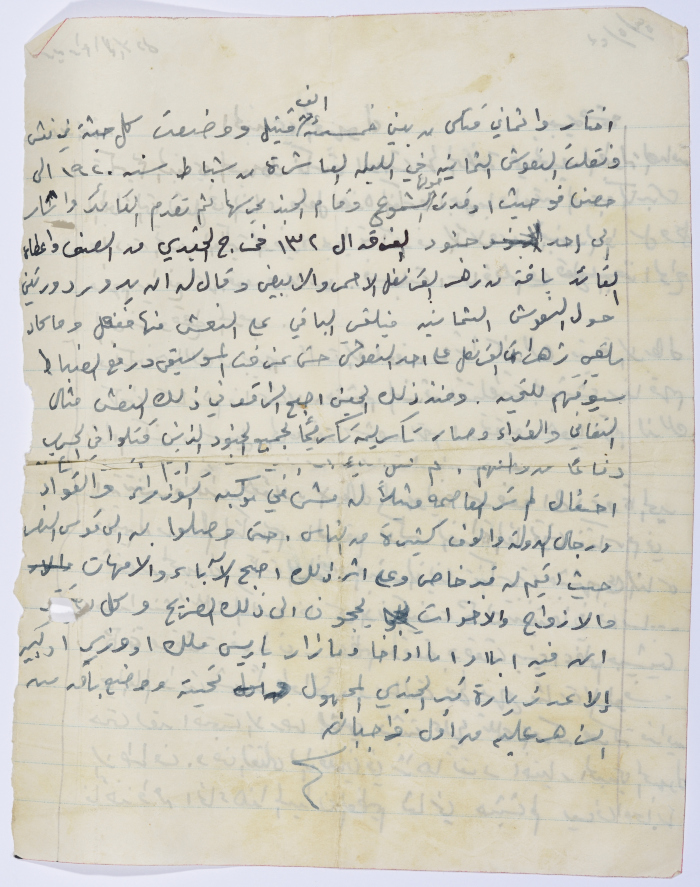 الف
اختار واثماني قتلى من بين خمسمئة قتيل ووضعت كل جثة في نعش
ونقلت النعوش الثمانية في الليلة العاشرة من شباط سنة ١٩٢٠ الى
حصن حيث اوقدت حولها الشموع وقام الجند بحرسها ثم تقدم القائد واشار
الى احد جنود الفرقة ال ١٣٢ فخرج الجندي من الصف واعطاه
القائد باقة من زهر القرنفل الاحمر والابيض وقال له ان يدور دورتين
حول النعوش الثمانية فيلقي الباقي على النعش منها ففعل وما كاد
يلقي زهرات القرنفل على احد النعوش حتى عزفت الموسيقى ورفع الضباط
سيوفهم للتحية . ومنذ ذلك الحين اصبح الراقد في ذلك النعش مثال
التفاني والفداء وصار تكريمه تكريمًا لجميع الجنود الذين قتلوا في الحرب
دفاعًا عن وطنهم
احتفال لم تر العاصمة مثيلاً له مشى في موكبه الوزراء والقواد
ورجال الدولة والوف كثيرة من الناس . حتى وصلوا به الى قوس النصر
حيث اقيم له قبر خاص وعلى اثر ذلك اصبح الآباء والامهات
والازواج والاخوات يحجون الى ذلك الضريح وكل
ان فيه ابنا او اخا وما زار باريس ملك او وزير او كبير
إلا عد زيارة قبر الجندي المجهول تحية ووضع باقة من
الزهر عليه من أول واجباته